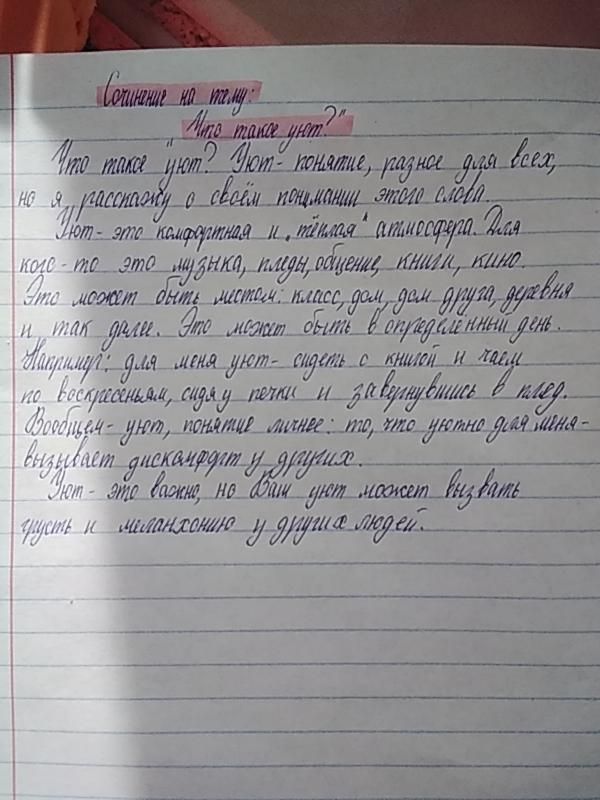 Сочинение на тему:
Что такое уют?"
Что такое "уют? Уют - понятие, разное для всех,
но я расскажу о своём понимании этого слова.
Уют - это комфортная и „тёплая" атмосфера. Для
кого-то это музыка, пледы, общение, книги, кино.
Это может быть местом: класс, дом, дом друга, деревня
и так далее. Это может быть в определенный день.
Например: для меня уют - сидеть с книгой и чаем
по воскресеньям, сидя у печки и завернувшись в плед.
Вообщем - уют, понятие личнее: то, что уютно для меня -
вызывает дискомфорт у других.
Уют - это важно, но Ваш уют может вызвать
грусть и меланхонию у других людей.